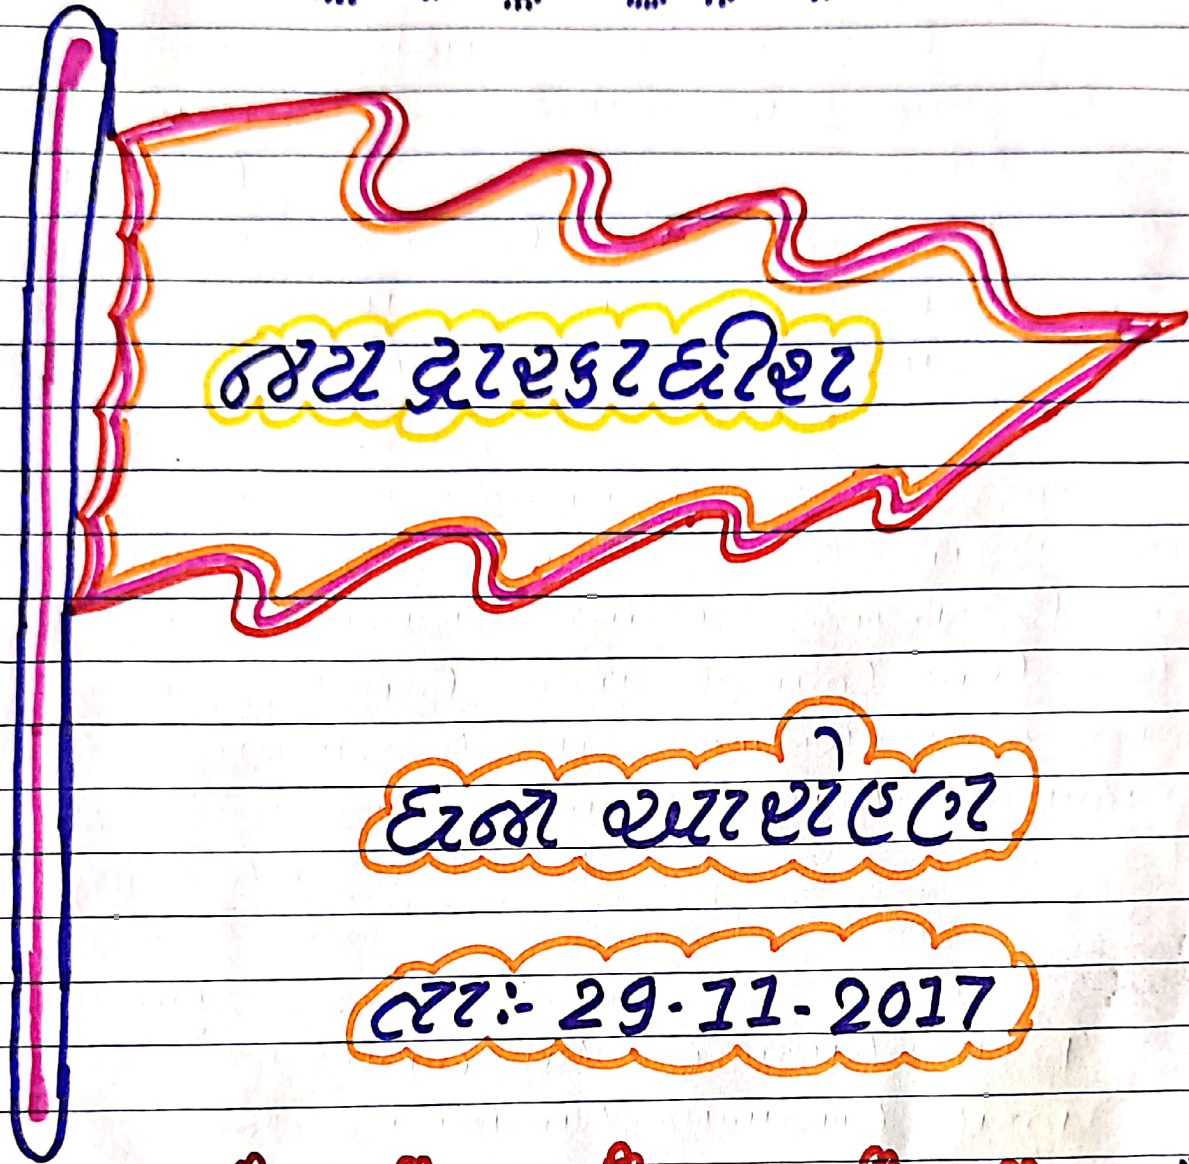 જય દ્વારકાધીશ
ધજા આરોહણ
તાઃ- 29-11-2017